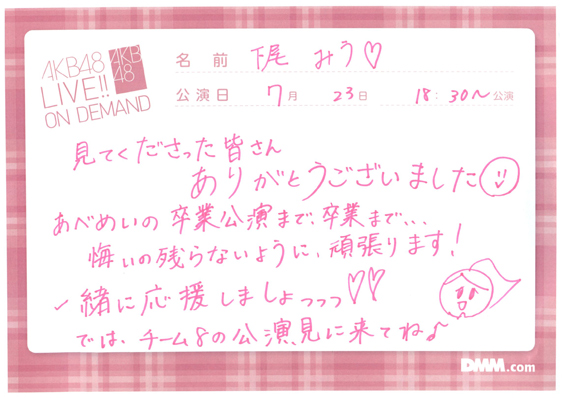 AKB48
LIVE!!
ON DEMAND
AKB
48
名前 下尾 みう♡
公演日 7月 23日 18:30〜公演
見てくださった皆さん
ありがとうございました
あべめいの卒業公演まで、卒業まで、、、
悔いの残らないように、頑張ります!
一緒に応援しましょっっっ♡♡
では、チーム8の公演、見に来てね♪
DMM.com